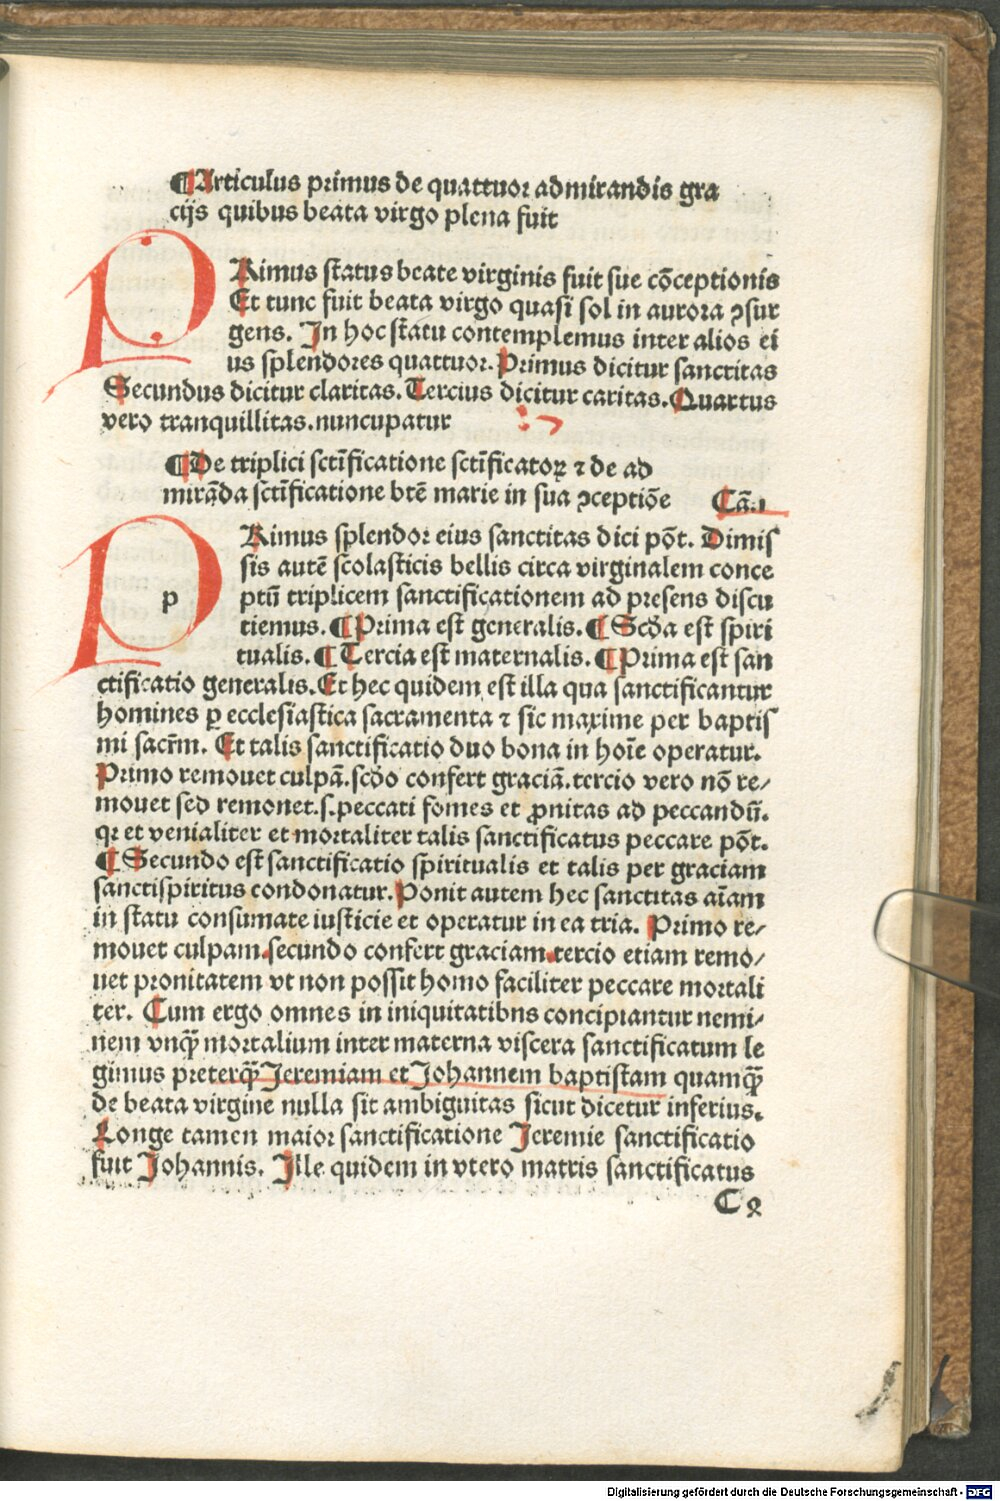 ¶Articulus primus de quattuor admirandis gra
cijs quibus beata virgo plena fuit
PRimus status beate virginis fuit sue cōceptionis
Et tunc fuit beata virgo quasi sol in aurora ꝯsur
gens. In hoc statu contemplemus inter alios ei
us splendores quattuor. Primus dicitur sanctitas
Secundus dicitur claritas. Tercius dicitur caritas. Quartus
vero tranquillitas.nuncupatur
¶De triplici sctīficatione sctīficatoꝝ ⁊ de ad
mirāda sctīficatione btē marie in sua ꝯceptiōe Cā.i
PRimus splendor eius sanctitas dici pōt. Dimis
p
sis autē scolasticis bellis circa virginalem conce
ptū triplicem sanctificationem ad presens discu
tiemus. ¶Prima est generalis. ¶Scďa est spiri
tualis. ¶Tercia est maternalis. ¶Prima est san
ctificatio generalis. Et hec quidem est illa qua sanctificantur
homines ꝑ ecclesiastica sacramenta ⁊ sic maxime per baptis
mi sacrm̄. Et talis sanctificatio duo bona in hoīe operatur.
Primo remouet culpā.scďo confert graciā.tercio vero nō re/
mouet sed remonet.s.peccati fomes et ꝓnitas ad peccandū.
qꝛ et venialiter et mortaliter talis sanctificatus peccare pōt.
¶Secundo est sanctificatio spiritualis et talis per graciam
sanctispiritus condonatur. Ponit autem hec sanctitas aīam
in statu consumate iusticie et operatur in ea tria. Primo re/
mouet culpam.secundo confert graciam.tercio etiam remo/
uet pronitatem vt non possit homo faciliter peccare mortali
ter. Cum ergo omnes in iniquitatibns concipiantur nemi/
nem vnqꝫ̄ mortalium inter materna viscera sanctificatum le
gimus preterqꝫ̄ Jeremiam et Johannem baptistam quamqꝫ̄
de beata virgine nulla sit ambiguitas sicut dicetur inferius.
Longe tamen maior sanctificatione Jeremie sanctificatio
fuit Johannis. Ille quidem in vtero matris sanctificatus
C2
Digitalisierung gefördert durch die Deutsche Forschungsgemeinschaft - DFG